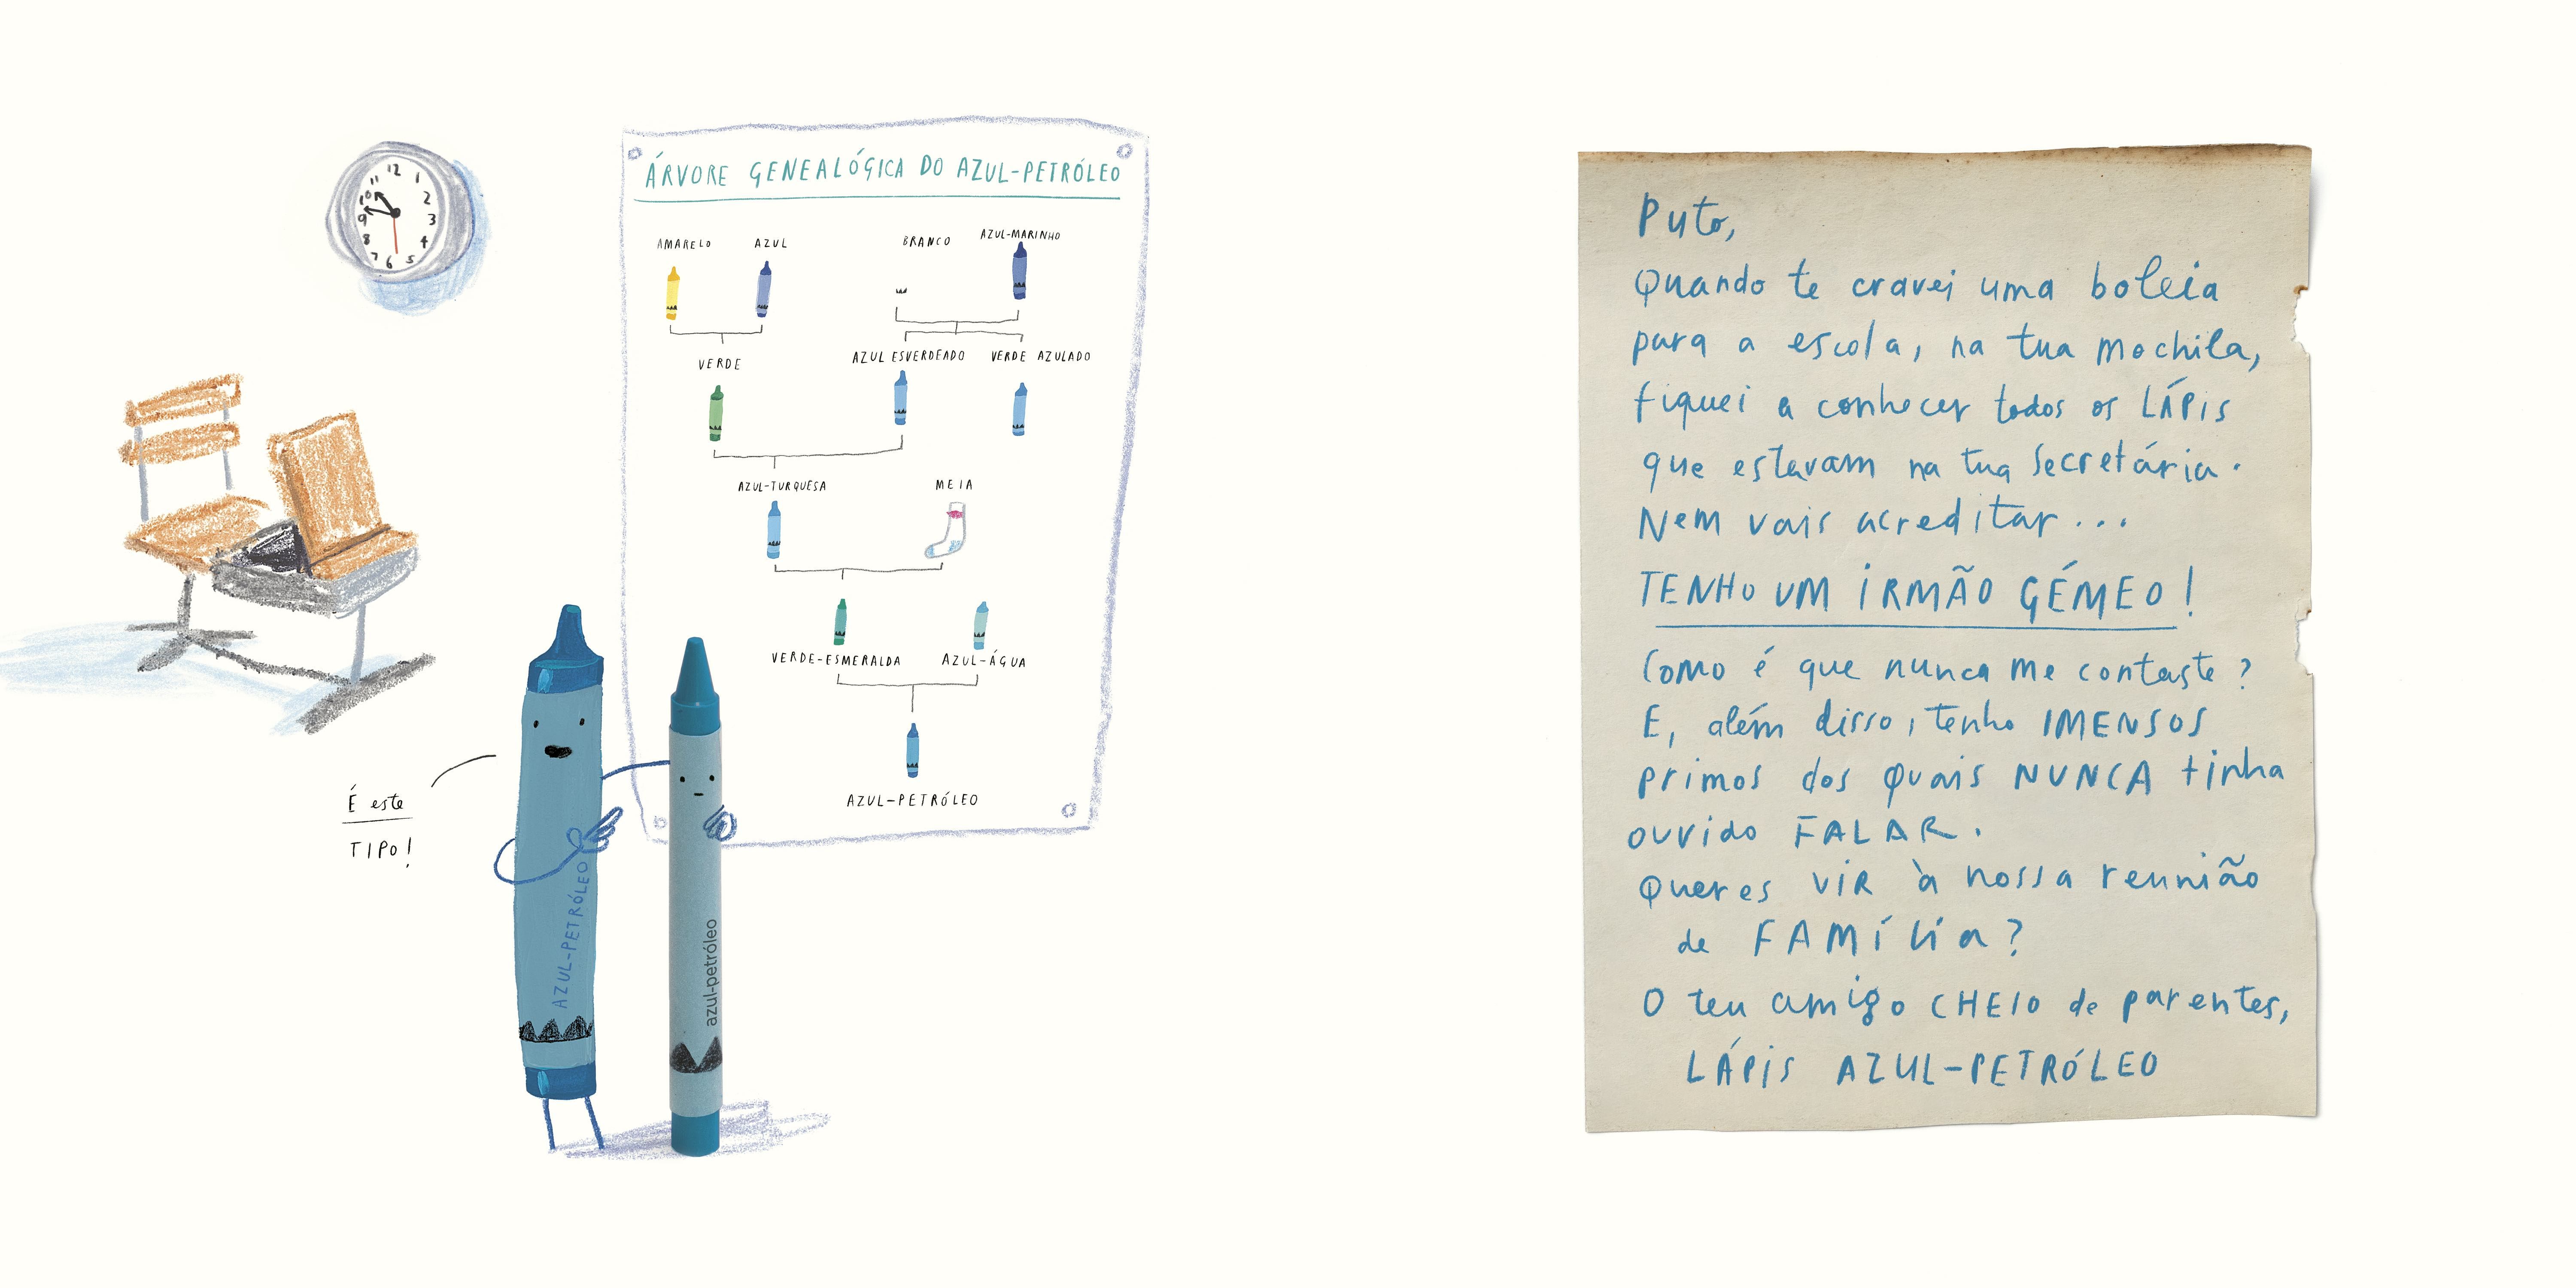 12
11
1
10
2
9
3
8
4
7
6
5
ÁRVORE GENEALÓGICA DO AZUL-PETRÓLEO
AMARELO AZUL BRANCO AZUL-MARINHO
VERDE AZUL ESVERDEADO VERDE AZULADO
AZUL-TURQUESA MEIA
VERDE-ESMERALDA AZUL-ÁGUA
AZUL-PETRÓLEO
É este
TIPO!
AZUL-PETRÓLEO
azul-petróleo
Puto,
Quando te cravei uma boleia
para a escola, na tua mochila,
fiquei a conhecer todos os LÁPiS
que estavam na tua secretária.
Nem vais acreditar...
TENHO UM iRMÃO GÉMEO!
Como é que nunca me contaste?
E, além disso, tenho IMENSOS
primos dos quais NUNCA tinha
ouvido FALAR.
Queres ViR à nossa reunião
de FAMíLia?
O teu amigo CHEIO de parentes,
LÁPiS AZUL-PETRÓLEO